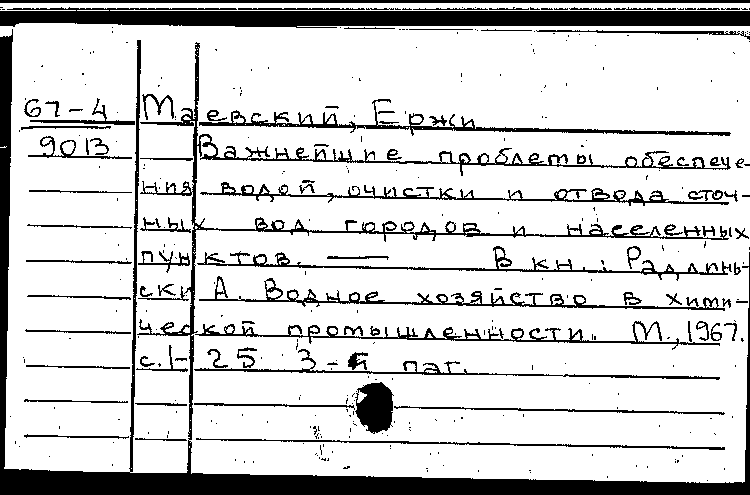 67-4 Маевский, Ержи
9013 Важнейшие проблемы обеспече-
ния водой, очистки и отвода сточ-
ных вод городов и населенных
пунктов. — В кн.: Радлинь-
ски А. Водное хозяйство в хими-
ческой промышленности. М., 1967.
с. 1-25 3-й паг.